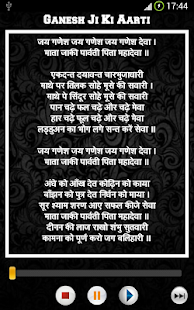 17:44
Ganesh Ji Ki Aarti
जय गणेश जय गणेश जय गणेश देवा ।
माता जाकी पार्वती पिता महादेवा ॥
एकदन्त दयावन्त चारभुजाधारी
माथे पर तिलक सोहे मूसे की सवारी
माथे पे सिंदूर सोहे मूसे की सवारी
पान चढ़े फूल चढ़े और चढ़े मेवा ।
लड्डुअन का भोग लगे सन्त करें सेवा ॥
जय गणेश जय गणेश जय गणेश देवा ।
माता जाकी पार्वती पिता महादेवा ॥
अंधे को आँख देत कोढ़िन को काया
बाँझन को पुत्र देत निर्धन को माया ।
सूर श्याम शरण आए सफल कीजे सेवा
माता जाकी पार्वती पिता महादेवा ॥
दीनन की लाज राखो शंभु सुतवारी
कामना को पूर्ण करो जग बलिहारी ॥